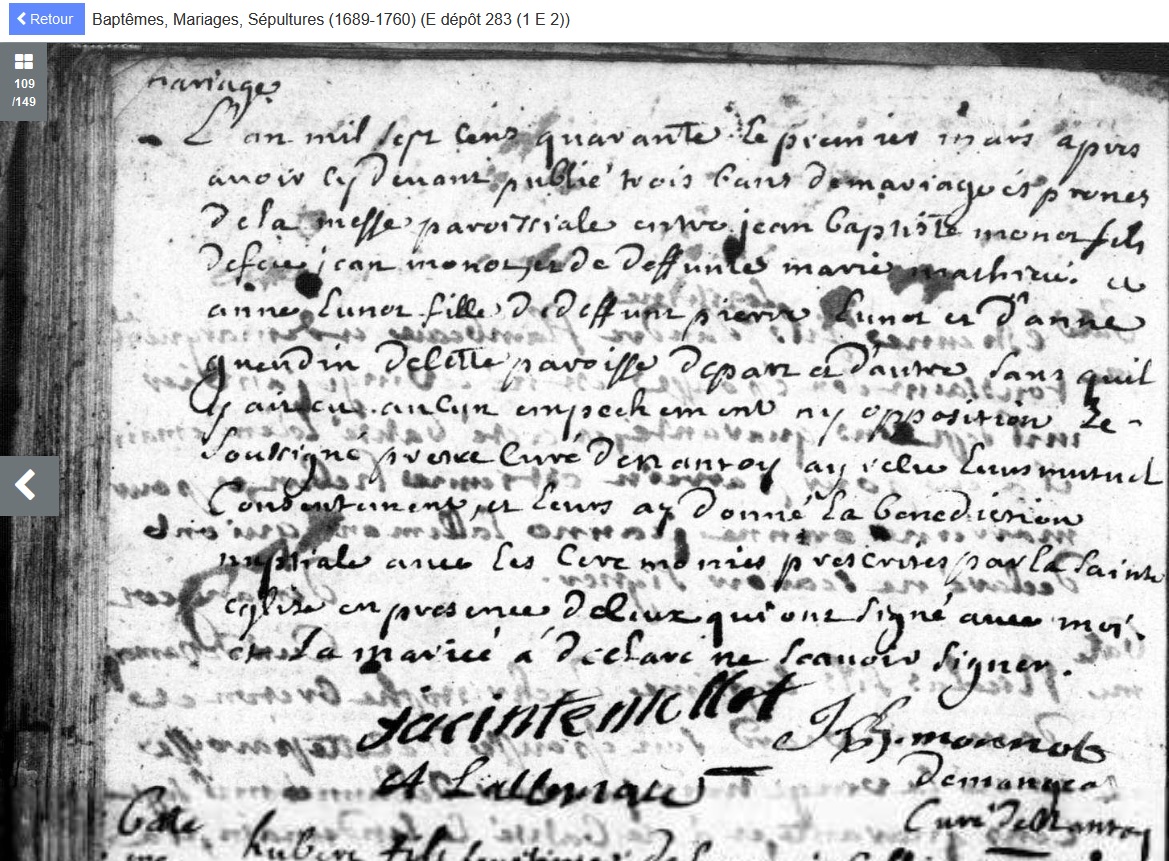 Retour
Baptêmes, Mariages, Sépultures (1689-1760) (E dépôt 283 (1 E 2))
109
/149
mariage
L'an mil sept cens quarante le premier mars apres
avoir cy devant publié trois bans de mariage és prones
de la messe paroissiale entre jean baptiste monot fils
de feu jean monot, et de deffunte marie mathieu. et
anne Lunot fille de deffunt pierre Lunot et d'anne
de cette paroisse de part et d'autre sans quil
y ait eu aucun empechement ny opposition Je
soussigné prestre curé de Nantoy ay receu leurs mutuel
Consentement, et leurs ay donné la benediction
nuptiale avec les ceremonies prescrites par la sainte
eglise en presence de ceux qui ont signé avec moi.
et La mariée a declaré ne scavoir signer.
jacinte millot
J B. monnot
A Lallemand
demanges
Curé de Nantoy
hubert fils